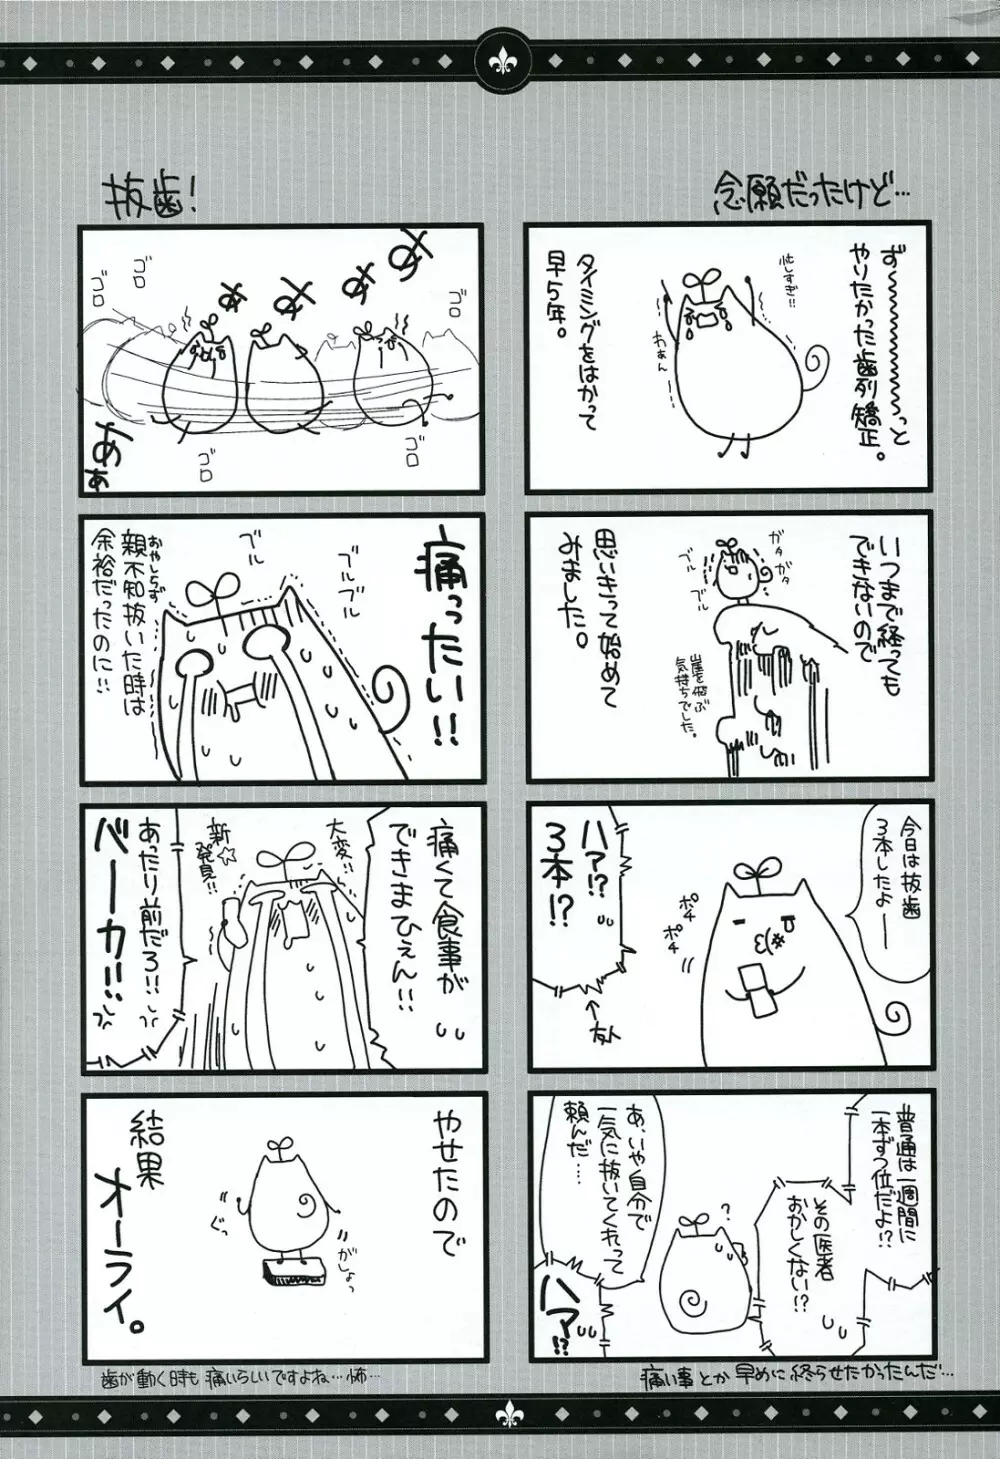 念願だったけど…
ず～～～～～っと
やりたかった歯列矯正。
忙しすぎ!!
わぁん
タイミングをはかって
早5年。
いつまで経っても
できないので
ガタガタ
ブルブル
思いきって始めて
みました。
崖を飛ぶ
気持ちでした。
今日は抜歯
3本したよー
ポチ
ポチ
ハァ!?
3本!?
←友人
普通は一週間に
一本ずつ位だよ!?
その医者
おかしくない!?
?
あ、いや自分で
一気に抜いてくれって
頼んだ……
ハァ!?
痛い事とか早めに終らせたかったんだ…
抜歯!
ああああ
ゴロ
ゴロ
ゴロ
ゴロ
ゴロ
あぁ
痛ったい!!
ブルブル
ブル
親不知抜いた時は
おやしらず
余裕だったのに!!
痛くて食事が
できまひぇん!!
大変!!
新☆
発見!!
あたり前だろ!!
バーカ!!
やせたので
がしょっ
ぐっ
結果
オーライ。
歯が動く時も痛いらしいですよね…怖…